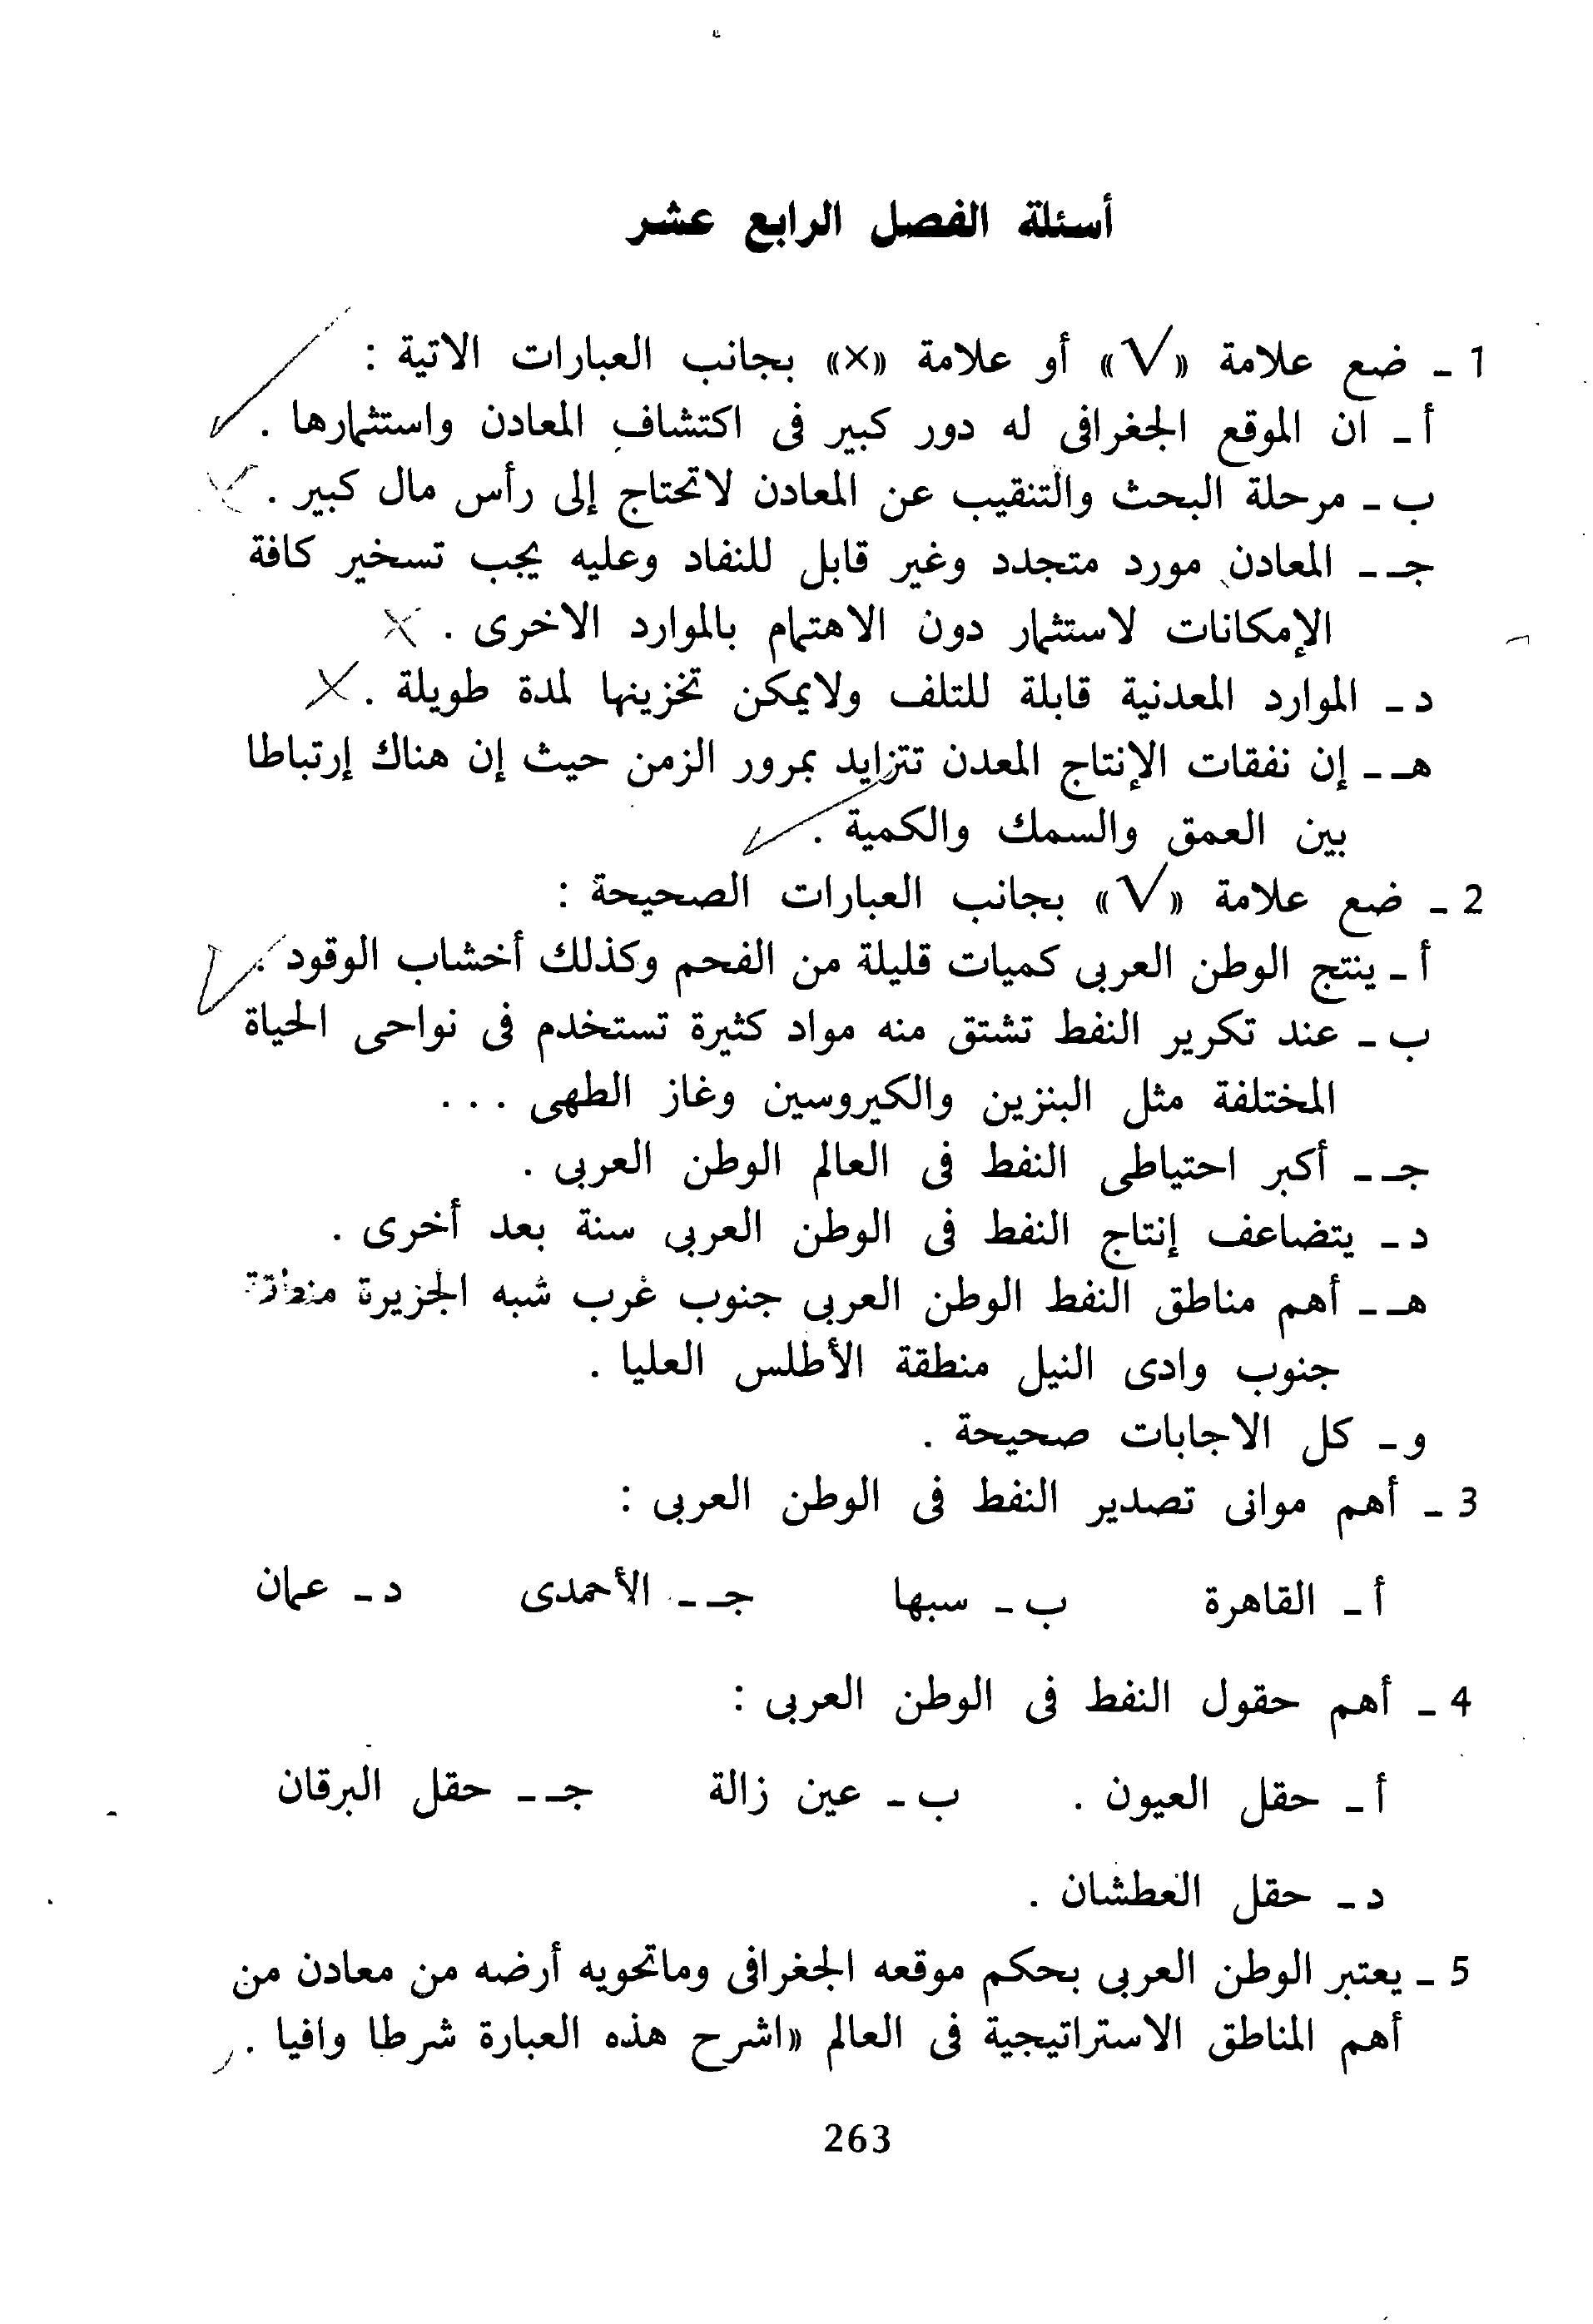 أسئلة الفصل الرابع عشر
1 ـ ضع علامة «√» أو علامة «×» بجانب العبارات الاتية :
أ ـ ان الموقع الجغرافى له دور كبير فى اكتشاف المعادن واستثمارها . √
ب ـ مرحلة البحث والتنقيب عن المعادن لاتحتاج إلى رأس مال كبير . ×
جـ ـ المعادن مورد متجدد وغير قابل للنفاد وعليه يجب تسخير كافة
الإمكانات لاستثمار دون الاهتمام بالموارد الاخرى . ×
د ـ الموارد المعدنية قابلة للتلف ولايمكن تخزينها لمدة طويلة . ×
هـ ـ إن نفقات الإنتاج المعدن تتزايد بمرور الزمن حيث إن هناك إرتباطا
بين العمق والسمك والكمية . √
2 ـ ضع علامة «√» بجانب العبارات الصحيحة :
أ ـ ينتج الوطن العربى كميات قليلة من الفحم وكذلك أخشاب الوقود . √
ب ـ عند تكرير النفط تشتق منه مواد كثيرة تستخدم فى نواحى الحياة
المختلفة مثل البنزين والكيروسين وغاز الطهى . . .
جـ ـ أكبر احتياطى النفط فى العالم الوطن العربى .
د ـ يتضاعف إنتاج النفط فى الوطن العربى سنة بعد أخرى .
هـ ـ أهم مناطق النفط الوطن العربى جنوب غرب شبه الجزيرة منطقة
جنوب وادى النيل منطقة الأطلس العليا .
و ـ كل الاجابات صحيحة .
3 ـ أهم موانى تصدير النفط فى الوطن العربى :
أ ـ القاهرة ب ـ سبها جـ ـ الأحمدى د ـ عمان
4 ـ أهم حقول النفط فى الوطن العربى :
أ ـ حقل العيون . ب ـ عين زالة جـ ـ حقل البرقان
د ـ حقل العطشان .
5 ـ يعتبر الوطن العربى بحكم موقعه الجغرافى وماتحويه أرضه من معادن من
أهم المناطق الاستراتيجية فى العالم «اشرح هذه العبارة شرطا وافيا .
263